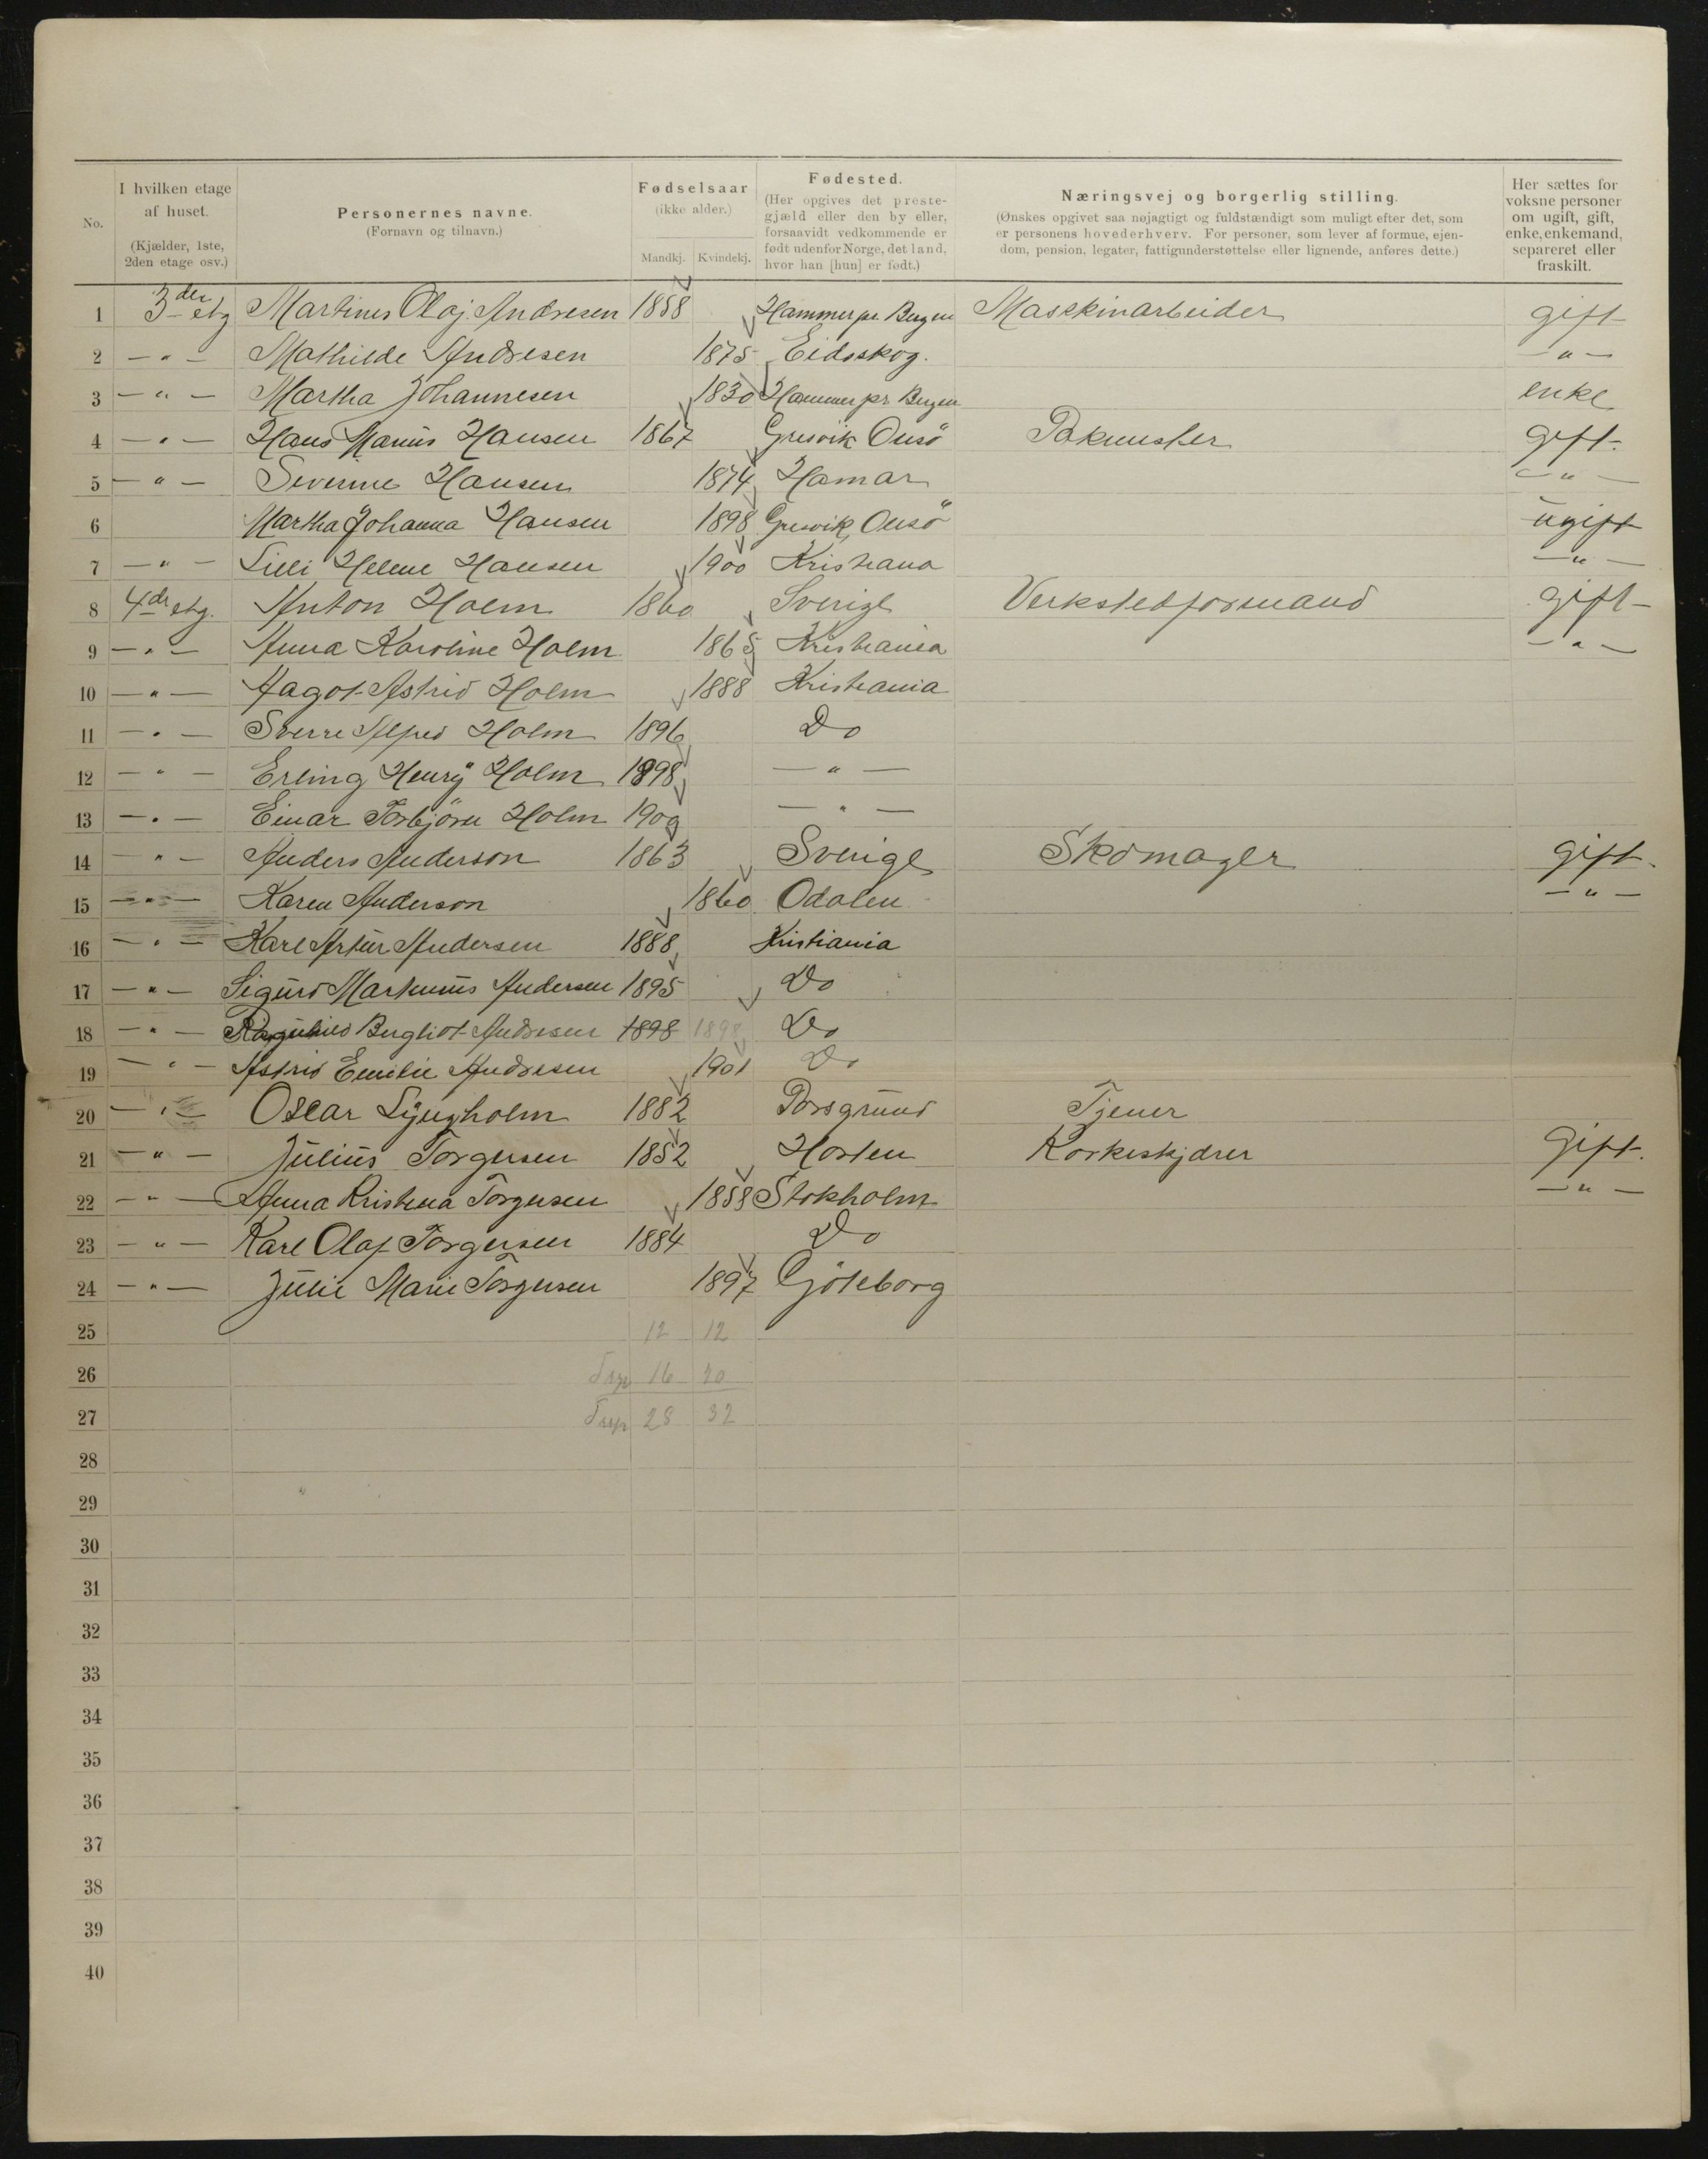 No. I hvilken etage af huset. (Kjælder, 1ste, 2den etage osv.) Personernes navne. (Fornavn og tilnavn.) Fødselsaar (ikke alder.) Mandkj. Kvindekj. Fødested. (Her opgives det prestegjæld eller den by eller, forsaavidt vedkommende er født udenfor Norge, det land, hvor han [hun] er født.) Næringsvej og borgerlig stilling. (Ønskes opgivet saa nøjagtigt og fuldstændigt som muligt efter det, som er personens hovederhverv. For personer, som lever af formue, ejendom, pension, legater, fattigunderstøttelse eller lignende, anføres dette.) Her sættes for voksne personer om ugift, gift, enke, enkemand, separeret eller fraskilt.
1 3der etg Martines Olaj Andresen 1858 Hammer pr. Bergen Maskinarbeider gift
2 — " — Mathilde Andresen 1875 Eidsskog. — " —
3 — " — Martha Johannesen 1830 Hammer pr Bergen enke
4 — " — Hans Marius Hansen 1867 Gresvik Onsö gift.
5 — " — Severine Hansen 1874 Hamar — " —
6 Martha Johanna Hansen 1898 Gresvik, Onsö ugift
7 — " — Lilli Helene Hansen 1900 Kristiana — " —
8 4de etg. Anton Holm 1860 Sverige Verkstedformand gift
9 — " — Anna Karoline Holm 1865 Kristiania — " —
10 — " — Aagot Astrid Holm 1888 Kristiania
11 — " — Sverre Alfred Holm 1896 Do
12 — " — Erling Henry Holm 1898 — " —
13 — " — Einar Torbjörn Holm 1900 — " —
14 — " — Anders Anderson 1863 Sverige Skomager gift.
15 — " — Karen Anderson 1860 Odalen — " —
16 — " — Karl Artur Andersen 1888 Kristiania
17 — " — Sigurd Markunus Andersen 1895 Do
18 — " — Ragnhild Bergliot Andresen 1898 1898 Do
19 — " — Astrid Emilie Andresen 1901 Do
20 — " — Oscar Ljungholm 1882 Porsgrund Tjener
21 — " — Julius Torgersen 1852 Horten Korkeskjærer Gift.
22 — " — Anna Kristena Torgersen 1858 Stokholm — " —
23 — " — Karl Olaf Torgersen 1884 Do
24 — " — Julie Marie Torgersen 1897 Göteborg
25 12 12
26 16 20
27 28 32
28
29
30
31
32
33
34
35
36
37
38
39
40